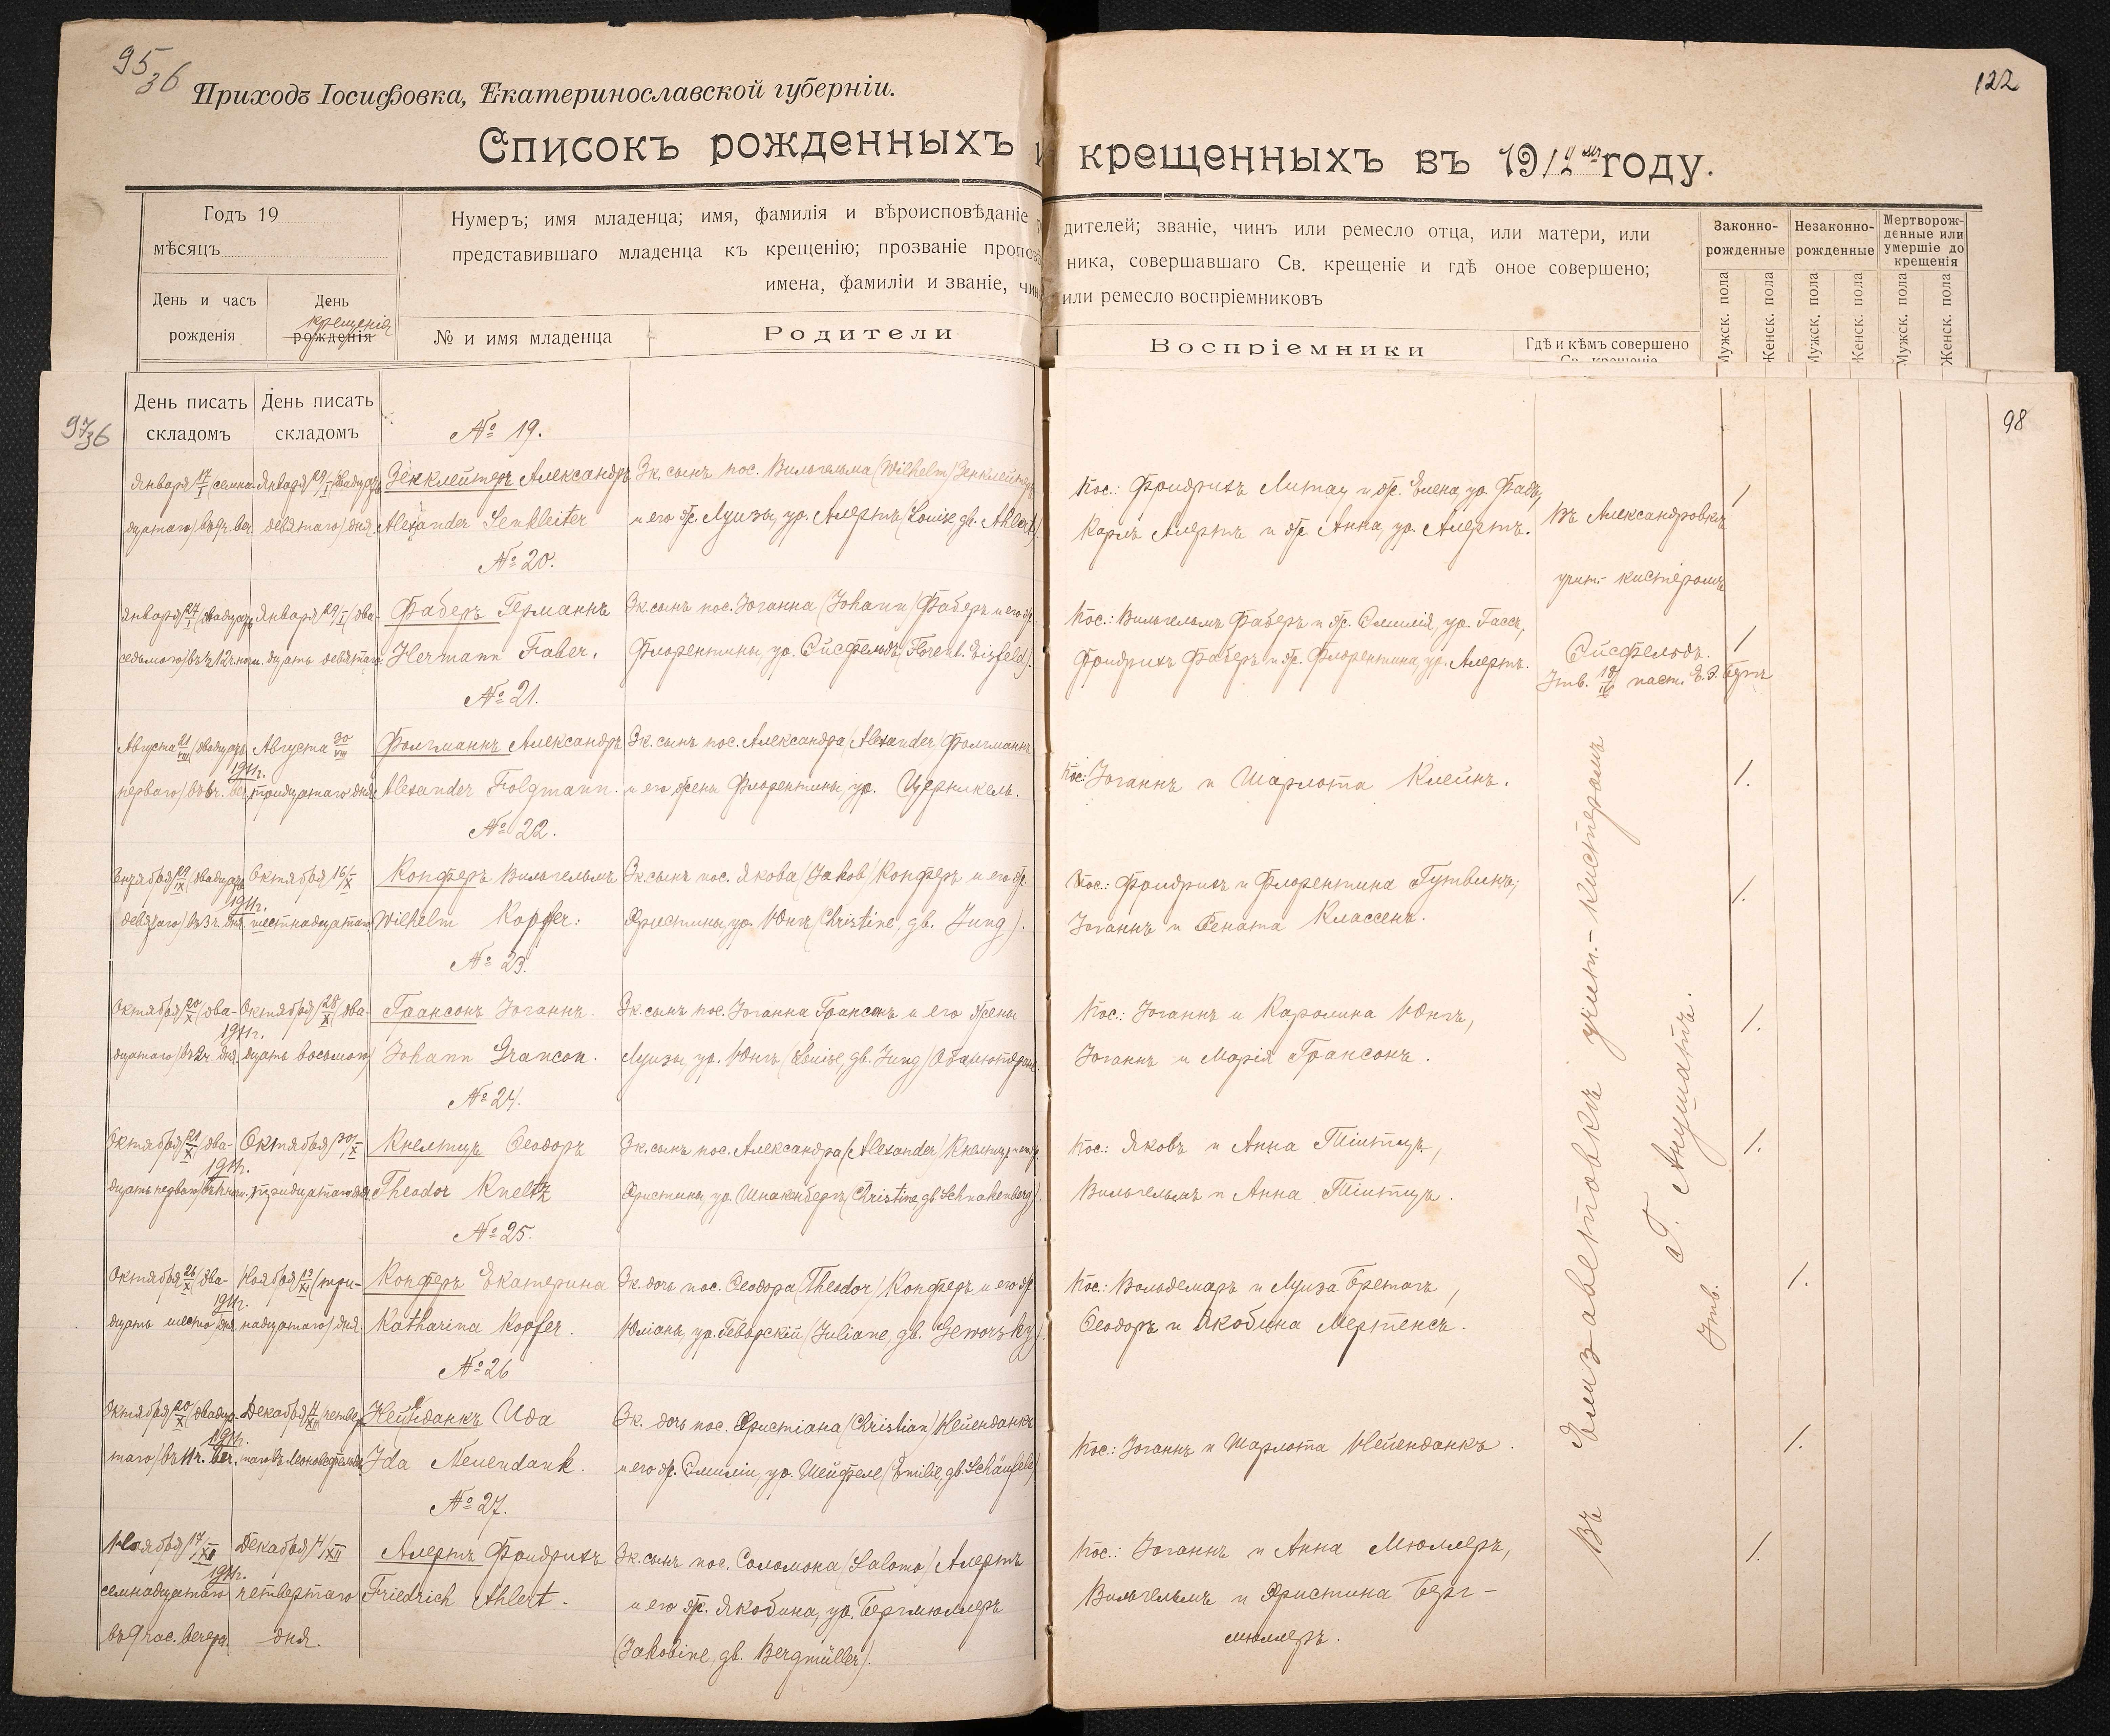 95/36
122
Приходъ Іосифовка, Екатеринославской губерніи.
Списокъ рожденныхъ и крещенныхъ въ 1912 году.
Годъ 19
мѣсяцъ
День и часъ
рожденія
День
крещенія
рожденія
Нумеръ; имя младенца; имя, фамилія и вѣроисповѣданіе дителей; званіе, чинъ или ремесло отца, или матери, или
представившаго младенца къ крещенію; прозваніе проповѣ ника, совершавшаго Св. крещеніе и гдѣ оное совершено;
имена, фамиліи и званіе, чинъ или ремесло воспріемниковъ
№ и имя младенца
Родители
Воспріемники
Гдѣ и кѣмъ совершено
Св. крещеніе
Законно-
рожденные
Незаконно-
рожденные
Мертворож-
денные или
умершіе до
крещенія
Мужск. пола
Женск. пола
Мужск. пола
Женск. пола
Мужск. пола
Женск. пола
97/36
98
День писать
складомъ
День писать
складомъ
№ 19.
Января 17/I (семна-
дцатаго)
Января 29/I (двадцать
девятаго) дня
Зенклейтеръ Александръ
Alexander Senkleiter
Зк. сынъ пос. Вильгельма (Wilhelm) Зенклейтеръ
и его ж. Луизы, ур. Алертъ (Louise gb. Ahlert).
Пос.: Фридрихъ Литау и ж. Елена, ур. Фабъ,
Карлъ Алертъ и ж. Анна, ур. Алертъ.
Въ Александровкѣ
учит.- кистеромъ
Эйсфельдъ.
Утв. паст.
1
№ 20.
Января 27/I
седьмого) въ 12 ч. ночи.
Января 29/I (два-
дцать девятаго
Фаберъ Германнъ
Hermann Faber.
Зк. сынъ пос. Іоганна (Johann) Фаберъ и его ж.
Флорентины, ур. Эйсфельдъ (Florent. Eisfeld).
Пос.: Вильгельмъ Фаберъ и ж. Эмилія, ур. Гассъ,
Фридрихъ Фаберъ и ж. Флорентина, ур. Алертъ.
1
№ 21.
Августа 21/VIII (двадцать
перваго)
1911г.
Августа 30/VIII
тридцатаго дня
Фолгманнъ Александръ
Alexander Folgmann.
Зк. сынъ пос. Александра (Alexander) Фолгманнъ
и его жены Флорентины, ур. Церникель.
Пос: Іоганнъ и Шарлота Клейнъ.
1.
№ 22.
Сентября 29/IX (двадцать
девятаго) въ 3 ч. дня
1911г.
Октября 16/X
шестнадцатаго
Копферъ Вильгельмъ
Wilhelm Kopfer:
Зк. сынъ пос. Якова (Jakob) Копферъ и его ж.
Христины, ур. Юнгъ (Christine, gb. Jung).
Пос.: Фридрихъ и Флорентина Гутвинъ;
Іоганнъ и Рената Классенъ.
1.
№ 23.
Октября 20/X (два-
дцатаго) въ 2 ч. дня
1911г.
Октября 28/X (два-
дцать восьмого)
Грансонъ Іоганнъ.
Johann Grancon.
Зк. сынъ пос. Іоганна Грансонъ и его жены
Луизы ур. Юнгъ (Louise, gb. Jung)
Пос.: Іоганнъ и Каролина Юнгъ,
Іоганнъ и Марія Грансонъ.
1.
№ 24.
Октября 21/X (два-
дцать перваго)
1911г.
Октября 30/X
тридцатаго дня
Кнельтцъ Ѳеодоръ
Theodor Kneltz
Зк. сынъ пос. Александра (Alexander) Кнельтцъ и его ж.
Христины, ур. Шнакенбергъ (Christine, gb Schnakenberg).
Пос: Яковъ и Анна Тіитцъ,
Вильгельмъ и Анна Тіитцъ.
1.
№ 25.
Октября 26/X (два-
дцать шесто дня
1911г.
Ноября 13/XI (три-
надцатаго) дня.
Копферъ Екатерина
Katharina Kopfer.
Зк. дочь пос. Ѳеодора (Theodor) Копферъ и его ж.
Юліаны, ур. Геворскій (Juliane, gb. Geworsky).
Пос: Вольдемаръ и Луиза Бретогъ,
Ѳеодоръ и Якобина Мертенсъ.
1.
№ 26
Октября 20/X (двадца-
таго) въ 11 ч. веч.
1911г.
Декабря 4/XII четвер-
таго
Нейенданкъ Ида
Ida Neuendank.
Зк. дочь пос. Христіана (Christian) Нейенданкъ
и его ж. Эмиліи, ур. Шейфеле (Emilie, gb. Schäufele)
Пос.: Іоганнъ и Шарлота Нейенданкъ.
1.
№ 27.
Ноября 17/XI
семнадцатаго
въ 9 час. вечера.
1911г.
Декабря 4/XII
четвертаго
дня.
Алертъ Фридрихъ
Friedrich Ahlert.
Зк. сынъ пос. Соломона (Salomo) Алертъ
и его ж. Якобина, ур. Бергмюллеръ
(Jakobine, gb. Bergmüller).
Пос.: Іоганнъ и Анна Мюллеръ,
Вильгельмъ и Христина Берг-
мюллеръ.
1.
Въ Елизаветовкѣ учит.- кистеромъ
Г. Аншатъ.
Утв.